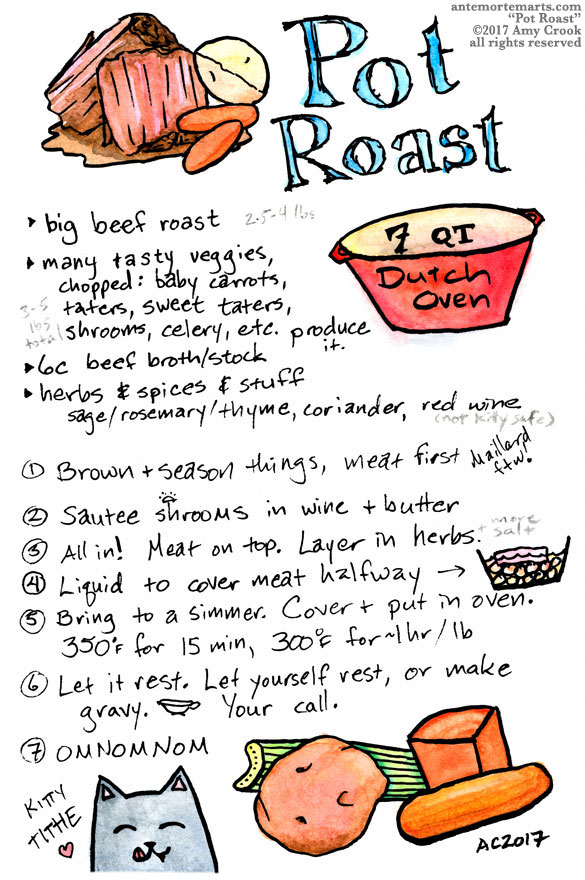 antemortemarts.com
"Pot Roast"
©2017 Amy Crook
all rights reserved
Pot
Roast
‣ big beef roast 2.5-4 lbs
‣ many tasty veggies,
chopped: baby carrots,
taters, sweet taters,
shrooms, celery, etc. produce
it.
3-5
lbs
total
‣ 6c beef broth/stock
‣ herbs & spices & stuff
sage/rosemary/thyme, coriander, red wine
(not kitty safe)
7 QT
Dutch
Oven
① Brown + season things, meat first
Maillard
ftw!
② Sautee shrooms in wine + butter
③ All in! Meat on top. Layer in herbs.
+ more
salt
④ Liquid to cover meat halfway →
⑤ Bring to a simmer. Cover + put in oven.
350°F for 15 min, 300°F for ~1hr/lb
⑥ Let it rest. Let yourself rest, or make
gravy. Your call.
⑦ OMNOMNOM
KITTY
TITHE
AC2017